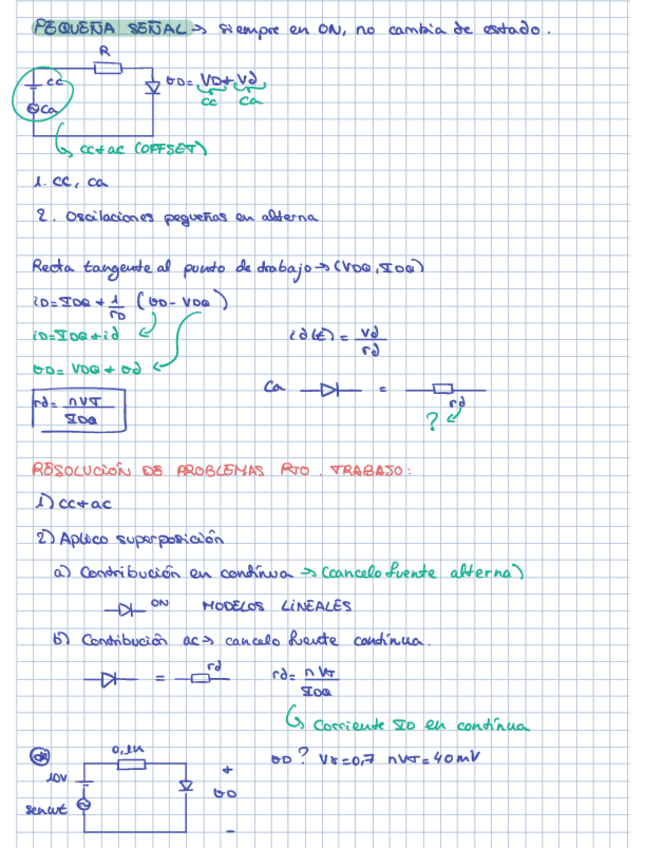 PEQUEÑA SEÑAL → siempre en ON, no cambia de estado.
R
cc
ca
vD = VD + Vd
cc ca
cc+ac (OFFSET)
1. cc, ca
2. Oscilaciones pequeñas en alterna
Recta tangente al punto de trabajo → (VDQ, IDQ)
iD = IDQ + 1/rD (vD - VDQ)
iD = IDQ + id
id(t) = Vd/rd
vD = VDQ + vd
rd = nVT/IDQ
Ca =
rd
?
RESOLUCIÓN DE PROBLEMAS PTO. TRABAJO:
1) cc+ac
2) Aplico superposición
a) Contribución en continua → (cancelo fuente alterna)
ON MODELOS LINEALES
b) Contribución ac → cancelo fuente continua.
= rd
rd = nVT/IDQ
Corriente ID en continua
0,1k
10V
senwt
+
vD
-
vD? Vγ=0,7 nVT=40mV